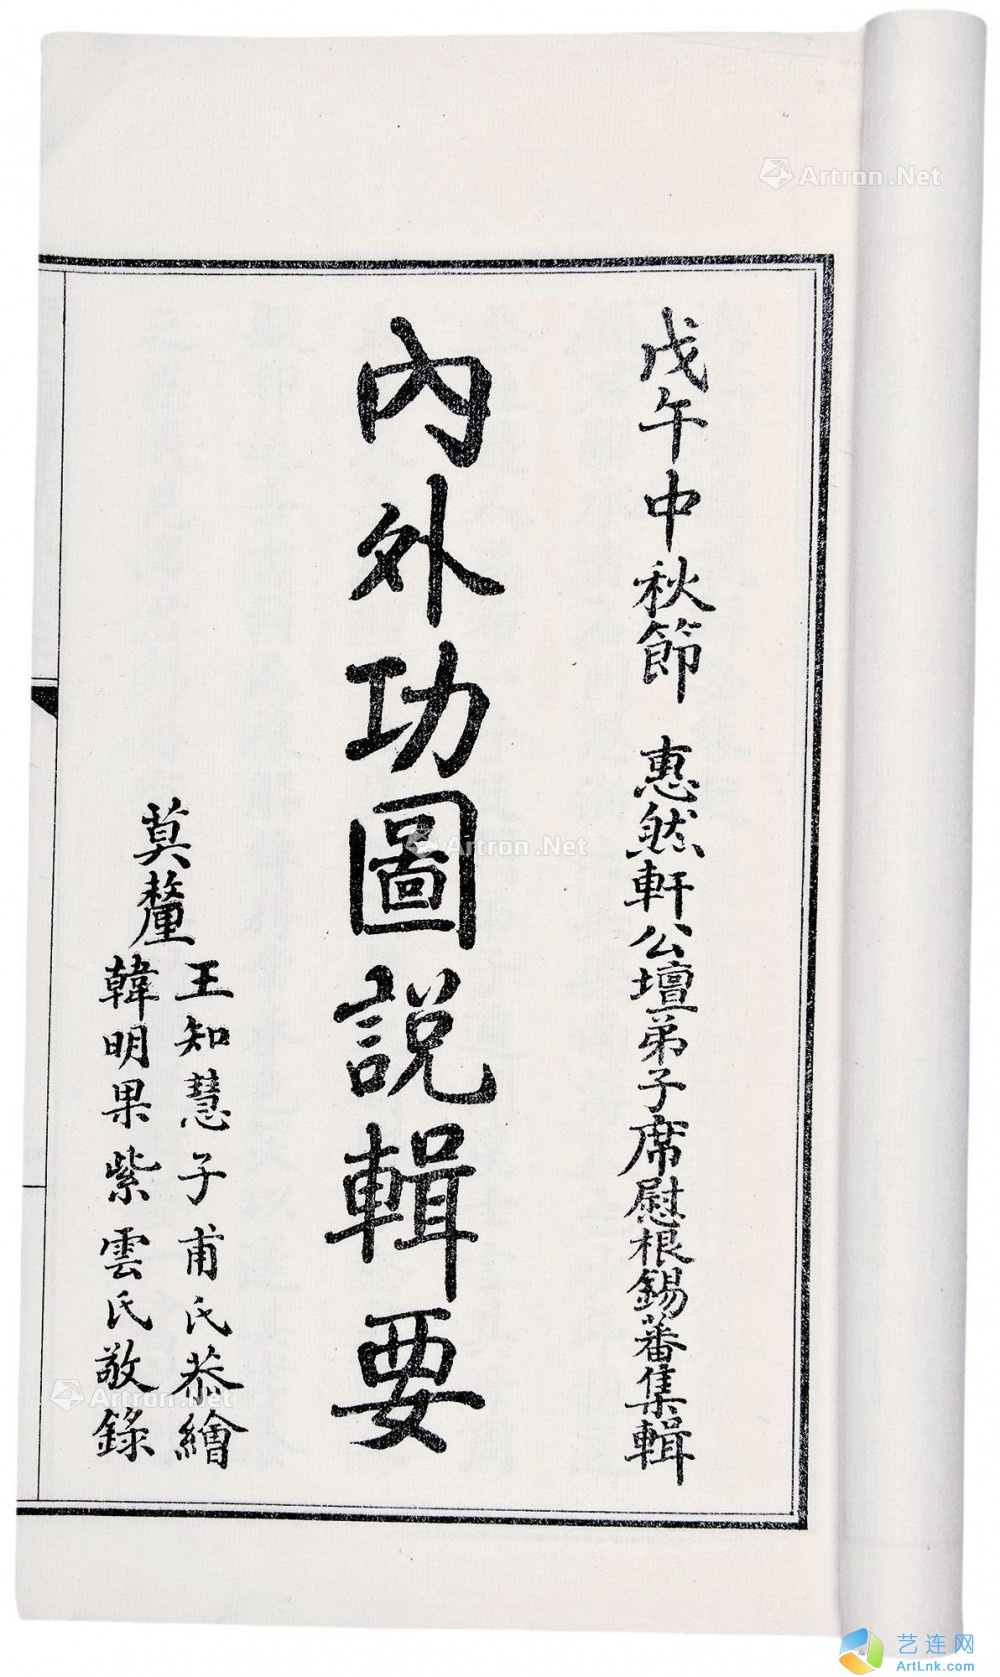 戊午中秋節 惠然軒公壇弟子席慰根錫蕃集輯
內外功圖說輯要
莫釐
王知慧子甫氏恭繪
韓明果紫雲氏敬錄
Artron.Net
Artron.Net
Artron.Net
艺连网
ArtLnk.com